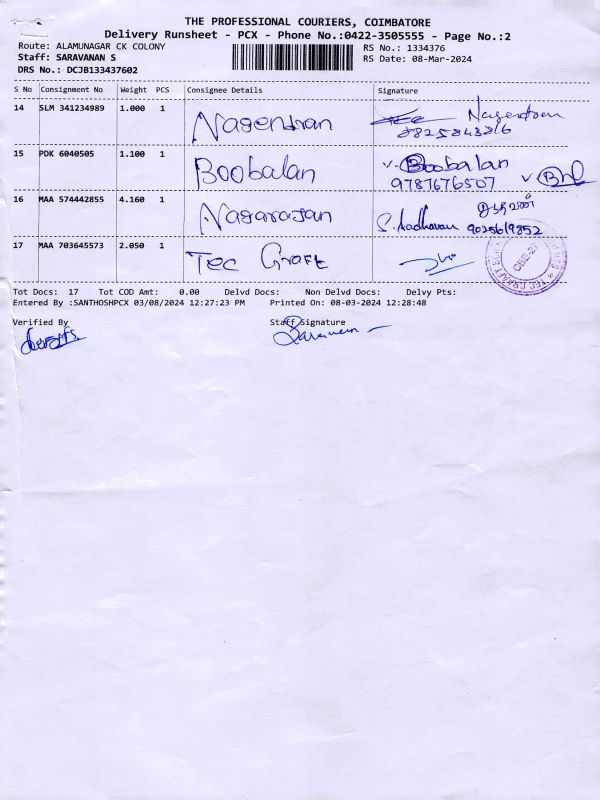 THE PROFESSIONAL COURIERS, COIMBATORE
Delivery Runsheet - PCX - Phone No.:0422-3505555 - Page No.:2
Route: ALAMUNAGAR CK COLONY RS No.: 1334376
Staff: SARAVANAN S RS Date: 08-Mar-2024
DRS No.: DCJB133437602
S No Consignment No Weight PCS Consignee Details Signature
14 SLM 341234989 1.000 1 Nagendran Nagendran
8825843816
15 PDK 6040505 1.100 1 Boobalan Boobalan
9787676507
16 MAA 574442855 4.160 1 Nagarajan
S. Aadhavan 9025619852
17 MAA 703645573 2.050 1 Tec Craft
Tot Docs: 17 Tot COD Amt: 0.00 Delvd Docs: Non Delvd Docs: Delvy Pts:
Entered By :SANTHOSHPCX 03/08/2024 12:27:23 PM Printed On: 08-03-2024 12:28:48
Verified By Staff Signature